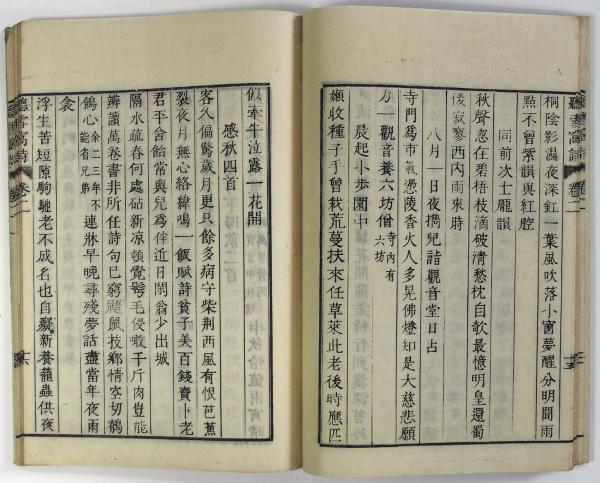 桐陰影濕夜深釭一葉風吹落小窗夢醒分明聞雨
點不曾紫韻與紅腔
同前次士龎韻
秋聲忽在碧梧枝滴破清愁枕自欹最憶明皇還蜀
後寂寥西内雨來時
八月一日夜攜兒詣觀音堂口占
寺門爲市氣憑陵香火人多晃佛燈知是大慈悲願
力一觀音養六坊僧寺内有六坊
晨起小步園中
嬾收種子手曾栽荒蔓扶來任草萊此老後時應匹
卷二
似牽牛泣露一花開
感秋四首
客久偏驚歲月更只餘多病守柴荆西風有恨芭蕉
裂夜月無心絡緯鳴一飯賦詩貧子美百錢賣卜老
君平舍飴常與兒爲伴近日閑翁少出城
隔水疏舂何處砧新凉頓覺鬢毛侵噉千斤肉豈能
辨讀萬卷書非所任詩句已窮鼯鼠技鄉情空切鶺
鴒心余二三年不能省兄弟連牀早晚尋殘夢話盡當年夜雨
衾
浮生苦短隙駒馳老不成名也自癡新養籠蟲供夜
卷二